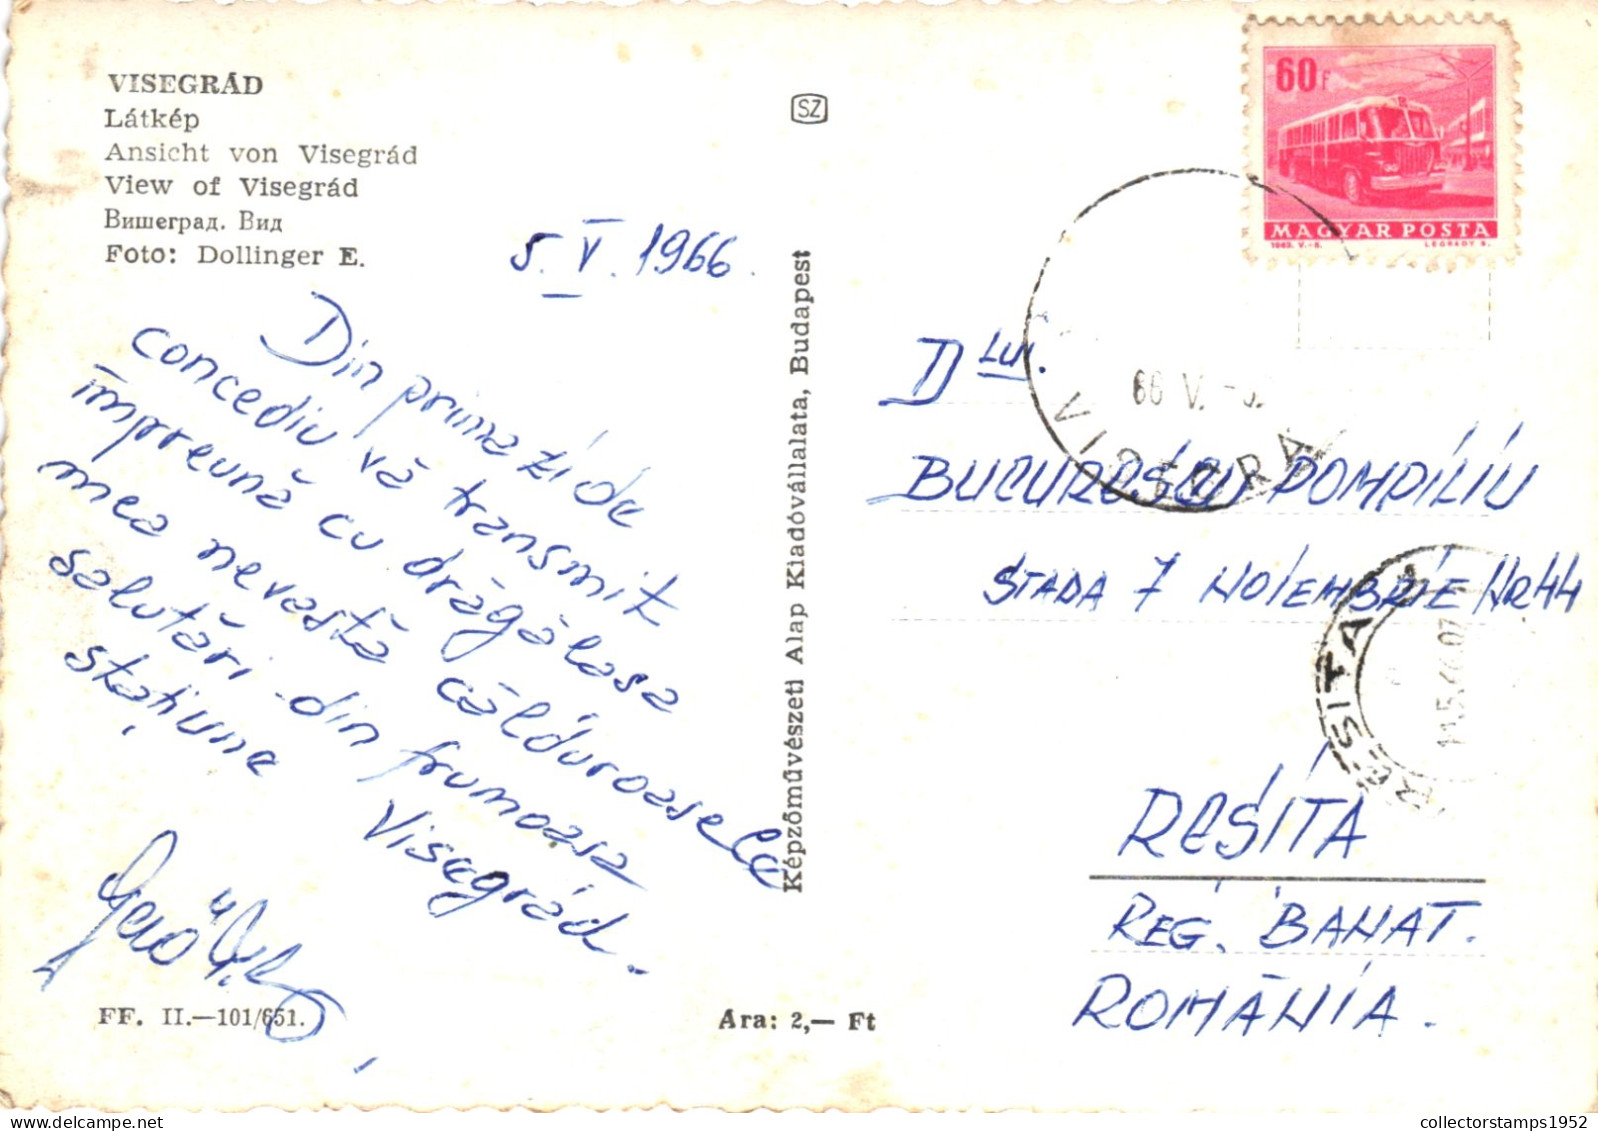 VISEGRÁD
Látkép
Ansicht von Visegrád
View of Visegrád
Вишеград. Вид
Foto: Dollinger E.
5. V. 1966.
Din prima zi de
concediu vă transmit
împreună cu drăgălașa
mea nevastă călduroasele
salutări din frumoasa
stațiune Visegrád.
FF. II.—101/651.
Ara: 2,— Ft
Képzőművészeti Alap Kiadóvállalata, Budapest
SZ
60f
MAGYAR POSTA
LÉGRÁDY S.
66 V.
VISEGRÁ
D LUI.
BUCUREȘCU POMPILIU
STADA 7 NOIEMBRIE NR 44
RESITA
REȘIȚA
REG. BANAT.
ROMÂNIA.
collectorstamps1952